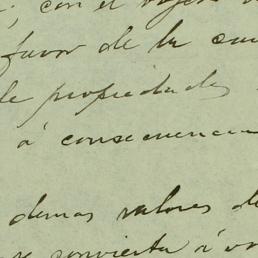 con el
favor de la
de propiedades
á consecuencia
demas valores de
se convierta á